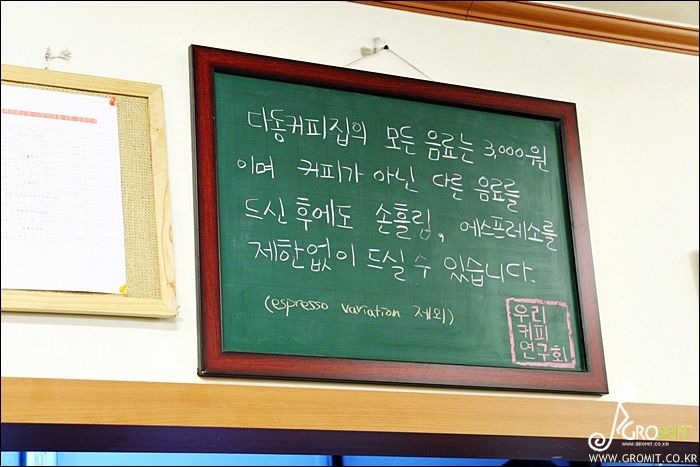 다동커피집의 모든 음료는 3,000원
이며 커피가 아닌 다른 음료를
드신 후에도 손흘림, 에스프레소를
제한없이 드실 수 있습니다.
(espresso variation 제외)
우리
커피
연구회
GROMIT
WWW.GROMIT.CO.KR
WWW.GROMIT.CO.KR